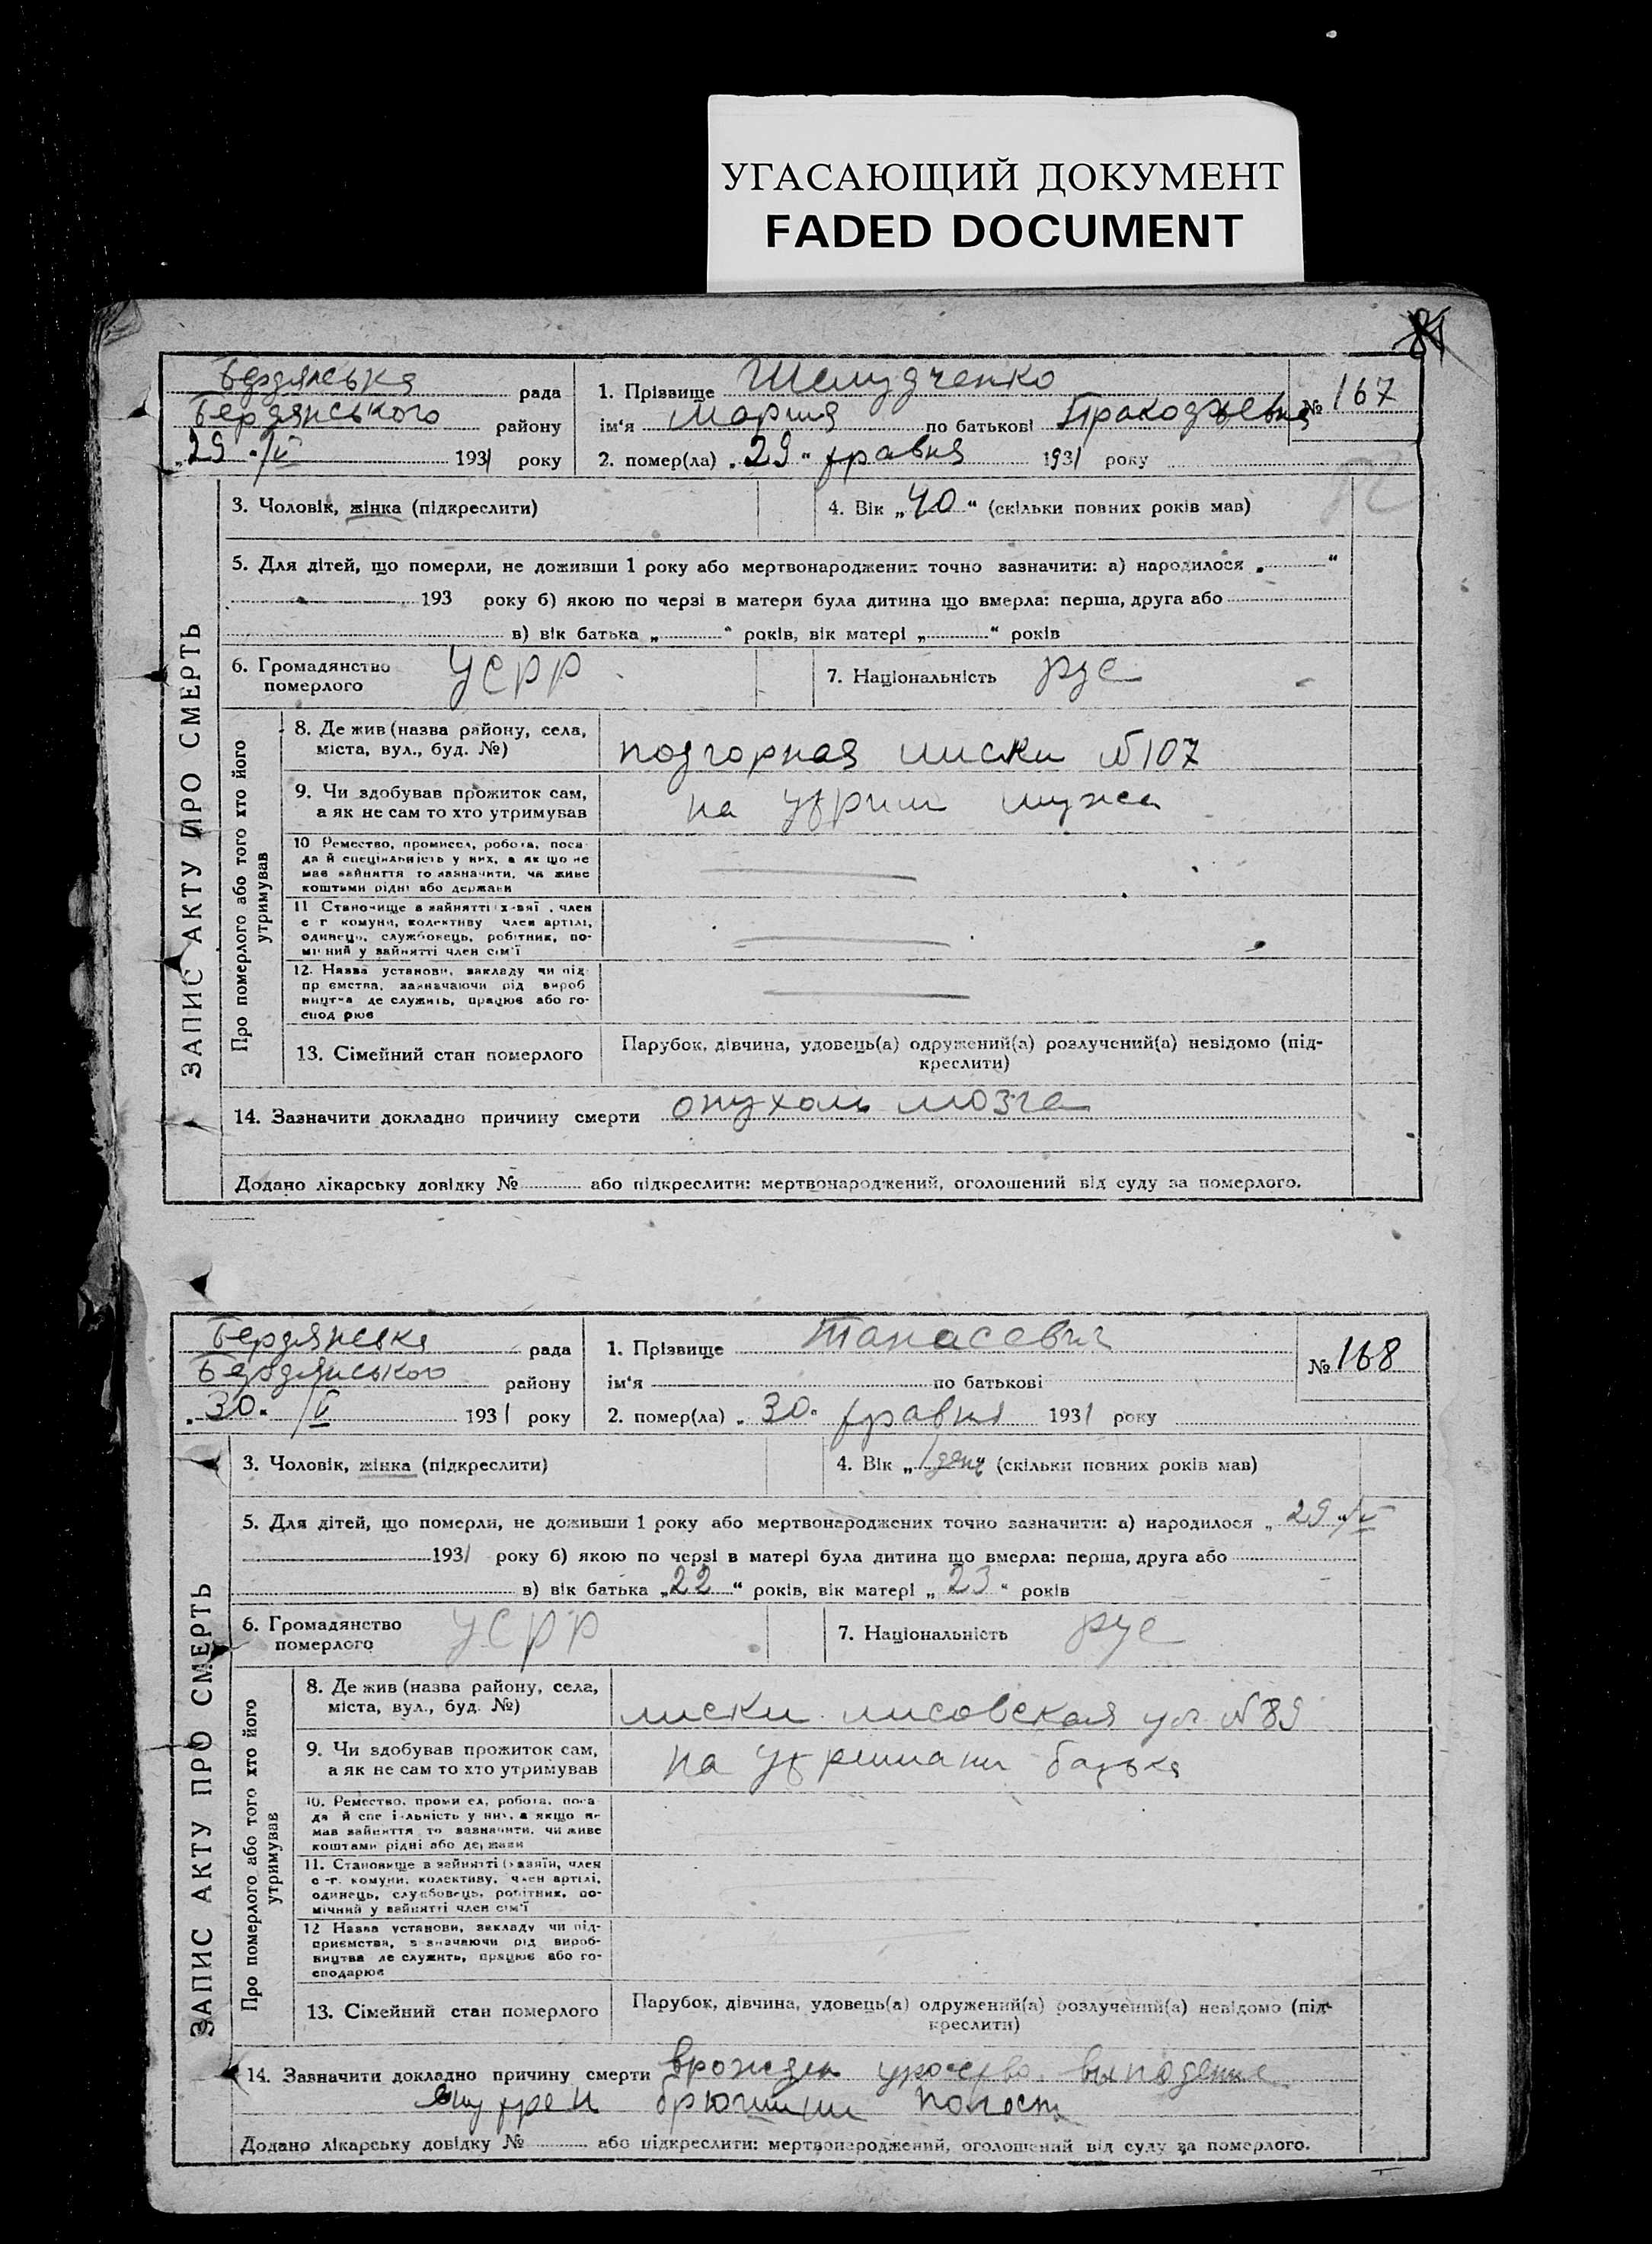 УГАСАЮЩИЙ ДОКУМЕНТ
FADED DOCUMENT
81
Бердянська рада
Бердянського району
„29 " /V 1931 року
1. Прізвище
ім'я Мария по батькові
2. помер(ла) „29" травня 1931 року
№ 167
ЗАПИС АКТУ ПРО СМЕРТЬ
3. Чоловік, жінка (підкреслити)
4. Вік „40" (скільки повних років мав)
5. Для дітей, що померли, не доживши 1 року або мертвонароджених точно зазначити: а) народилося „ "
193 року б) якою по черзі в матери була дитина що вмерла: перша, друга або
в) вік батька „ " років, вік матері „ " років
6. Громадянство
померлого
УСРР
7. Національність рус
Про померлого або того хто його
утримував
8. Де жив (назва району, села,
міста, вул., буд. №)
подгорная лиски №107
9. Чи здобував прожиток сам,
а як не сам то хто утримував
на утрим мужа
10 Ремество, промисел, робота, поса-
да й спеціяльність у них, а як що не
має зайняття то зазначити, чи живе
коштами рідні або держави
11 Становище в зайнятті , член
с г комуни, колективу член артілі,
одинець, службовець, робітник, по-
мічний у зайнятті член сім'ї
12. Назва установи, закладу чи під
пр ємства, зазначаючи рід вироб
ництва де служить, працює або го-
спод рює
13. Сімейний стан померлого
Парубок, дівчина, удовець(а) одружений(а) розлучений(а) невідомо (під-
креслити)
14. Зазначити докладно причину смерти опухоль мозга
Додано лікарську довідку № або підкреслити: мертвонароджений, оголошений від суду за померлого.
Бердянська рада
Бердянського району
„30" /V 1931 року
1. Прізвище Танасевич
ім'я по батькові
2. помер(ла) „30" травня 1931 року
№ 168
ЗАПИС АКТУ ПРО СМЕРТЬ
3. Чоловік, жінка (підкреслити)
4. Вік „1 день (скільки повних років мав)
5. Для дітей, що померли, не доживши 1 року або мертвонароджених точно зазначити: а) народилося „29"/V
1931 року б) якою по черзі в матері була дитина що вмерла: перша, друга або
в) вік батька „22" років, вік матері „23" років
6. Громадянство
померлого
УСРР
7. Національність рус
Про померлого або того хто його
утримував
8. Де жив (назва району, села,
міста, вул., буд. №)
лиски лисовская ул №89
9. Чи здобував прожиток сам,
а як не сам то хто утримував
на утримани батька
10. Ремество, проми ел, робота, поса-
да й спе і льність у них, а якщо не
мав зайняття то зазначити, чи живе
коштами рідні або держави
11. Становище в зайнятті (хазяїн, член
с -г. комуни, колективу, член артілі,
одинець, службовець, робітник, по-
мічний у зайнятті член сім'ї
12 Назва установи, закладу чи під-
приємства, зазначаючи рід вироб-
ництва де служить, працює або го-
сподарює
13. Сімейний стан померлого
Парубок, дівчина, удовець(а) одружений(а) розлучений(а) невідомо (під-
креслити)
14. Зазначити докладно причину смерти врожден выпадение
внутрен полост
Додано лікарську довідку № або підкреслити: мертвонароджений, оголошений від суду за померлого.